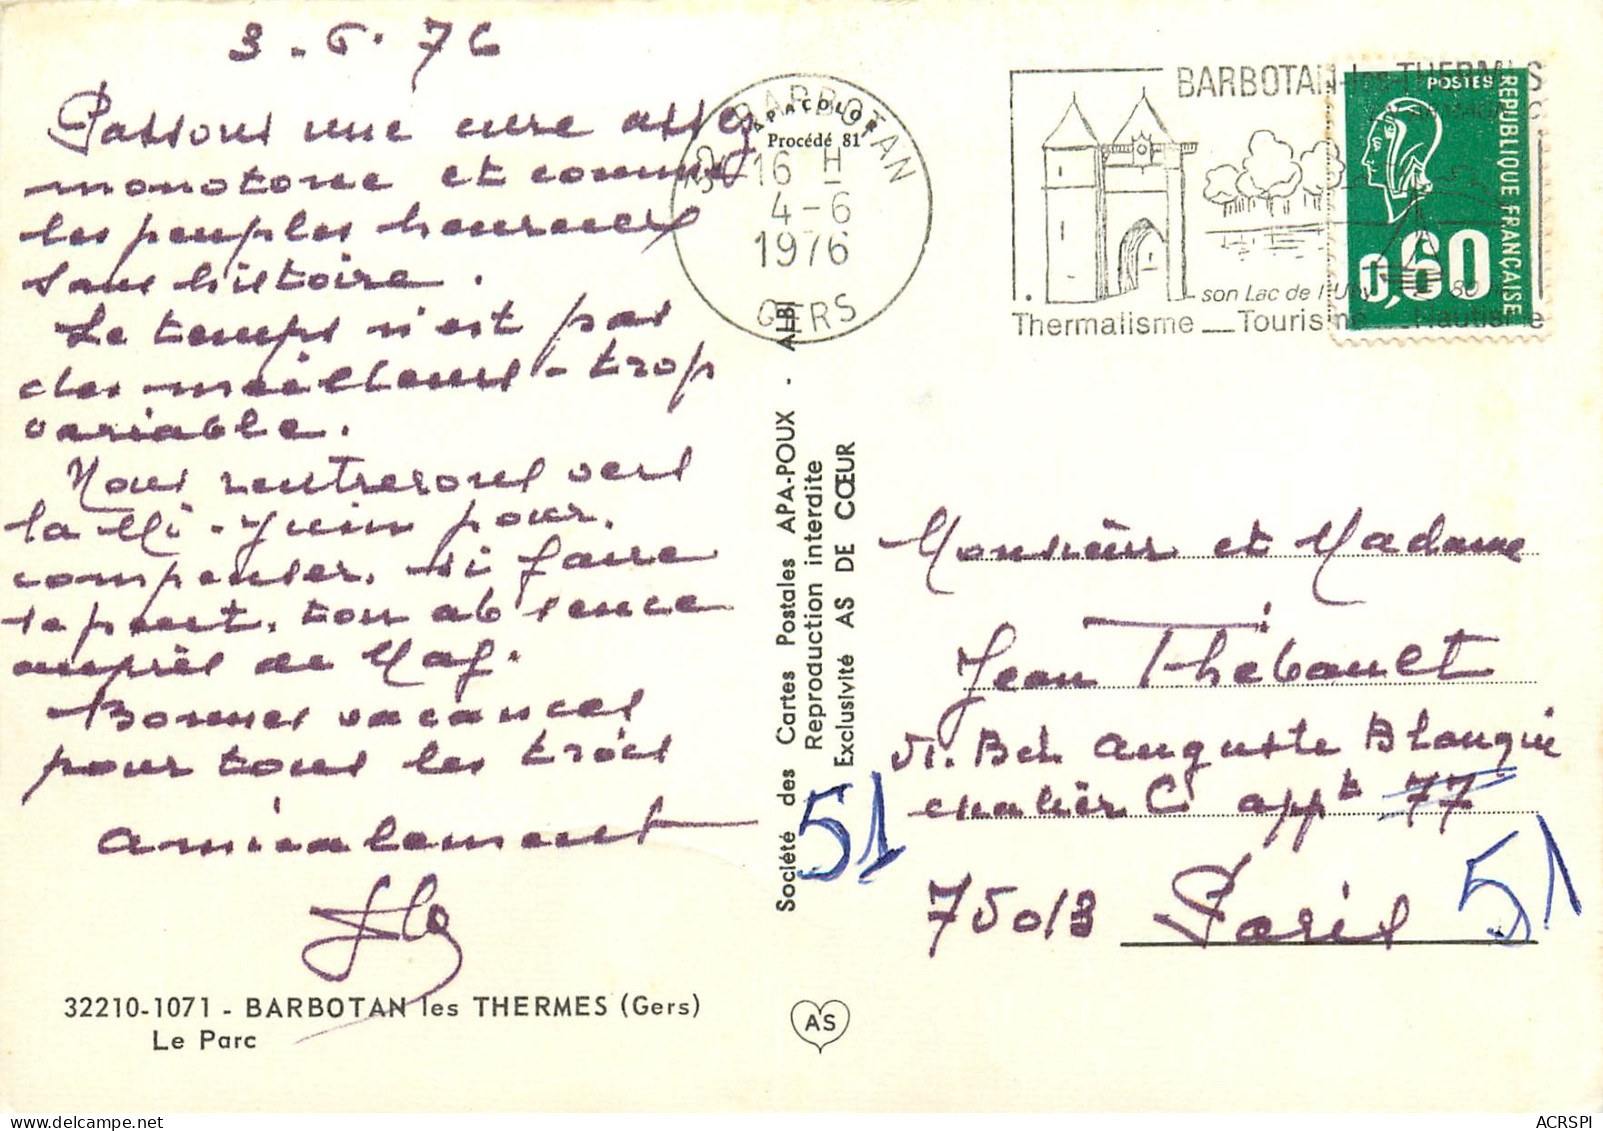 3-6-76
Passons une cure assez
monotone et comme
les peuples heureux
sans histoire.
Le temps n'est pas
des meilleurs - trop
variable.
Nous rentrerons vers
la Mi-Juin pour
compenser, si faire
se peut, ton absence
auprès de Maf.
Bonnes vacances
pour tous les trois
amicalement
32210-1071 - BARBOTAN les THERMES (Gers)
Le Parc
APACOLOR
Procédé 81
32 BARBOTAN
16 H
4-6
1976
GERS
BARBOTAN-les-THERMES
son Lac de l'Uby 80
Thermalisme __ Tourisme __ Nautisme
POSTES
REPUBLIQUE FRANCAISE
0,60
Société des Cartes Postales APA-POUX - ALBI
Reproduction interdite
Exclusivité AS DE CŒUR
51
AS
Monsieur et Madame
Jean Thébault
Bd. Auguste Blanqui
escalier C appt 77
51
75013 Paris
ACRSPI